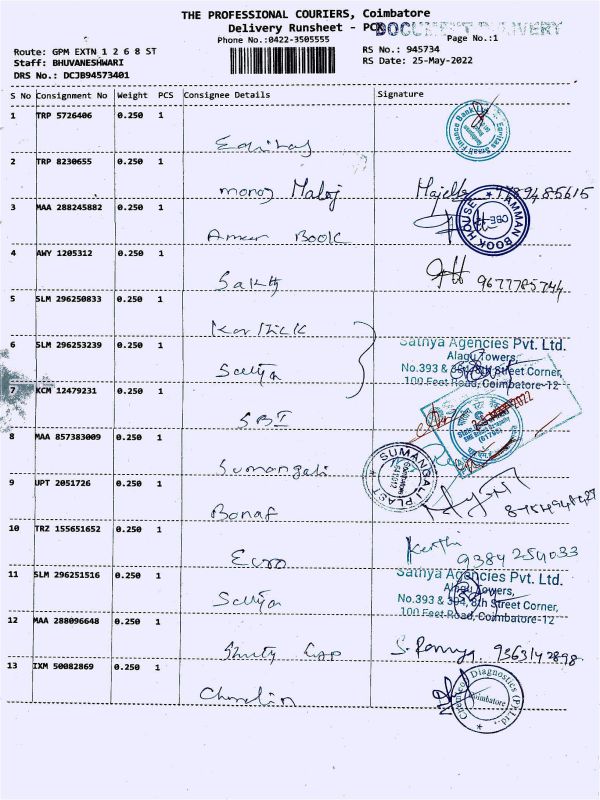 THE PROFESSIONAL COURIERS, Coimbatore
Delivery Runsheet - PCK
DOCUMENT DELIVERY
Phone No.:0422-3505555
Page No.:1
Route: GPM EXTN 1 2 6 8 ST
RS No.: 945734
Staff: BHUVANESHWARI
RS Date: 25-May-2022
DRS No.: DCJB94573401
S No Consignment No Weight PCS Consignee Details Signature
1 TRP 5726406 0.250 1
2 TRP 8230655 0.250 1
manoj
3 MAA 288245882 0.250 1
AMMAN BOOK HOUSE
CBE
Book
4 AWY 1205312 0.250 1
Sakthi
9677785744
5 SLM 296250833 0.250 1
Karthick
6 SLM 296253239 0.250 1
Sathya Agencies Pvt. Ltd.
Alagu Towers,
No.393 & 394, 8th Street Corner,
100 Feet Road, Coimbatore-12
Sathya
7 KCM 12479231 0.250 1
SBI
8 MAA 857383009 0.250 1
SUMANGALI PLAST
Sumangali
9 UPT 2051726 0.250 1
10 TRZ 155651652 0.250 1
Keerthi
9384 254033
Euro
11 SLM 296251516 0.250 1
Sathya Agencies Pvt. Ltd.
Alagu Towers,
No.393 & 394, 8th Street Corner,
100 Feet Road, Coimbatore-12
Sathya
12 MAA 288096648 0.250 1
13 IXM 50082869 0.250 1
Diagnostics (P) Ltd.
Coimbatore